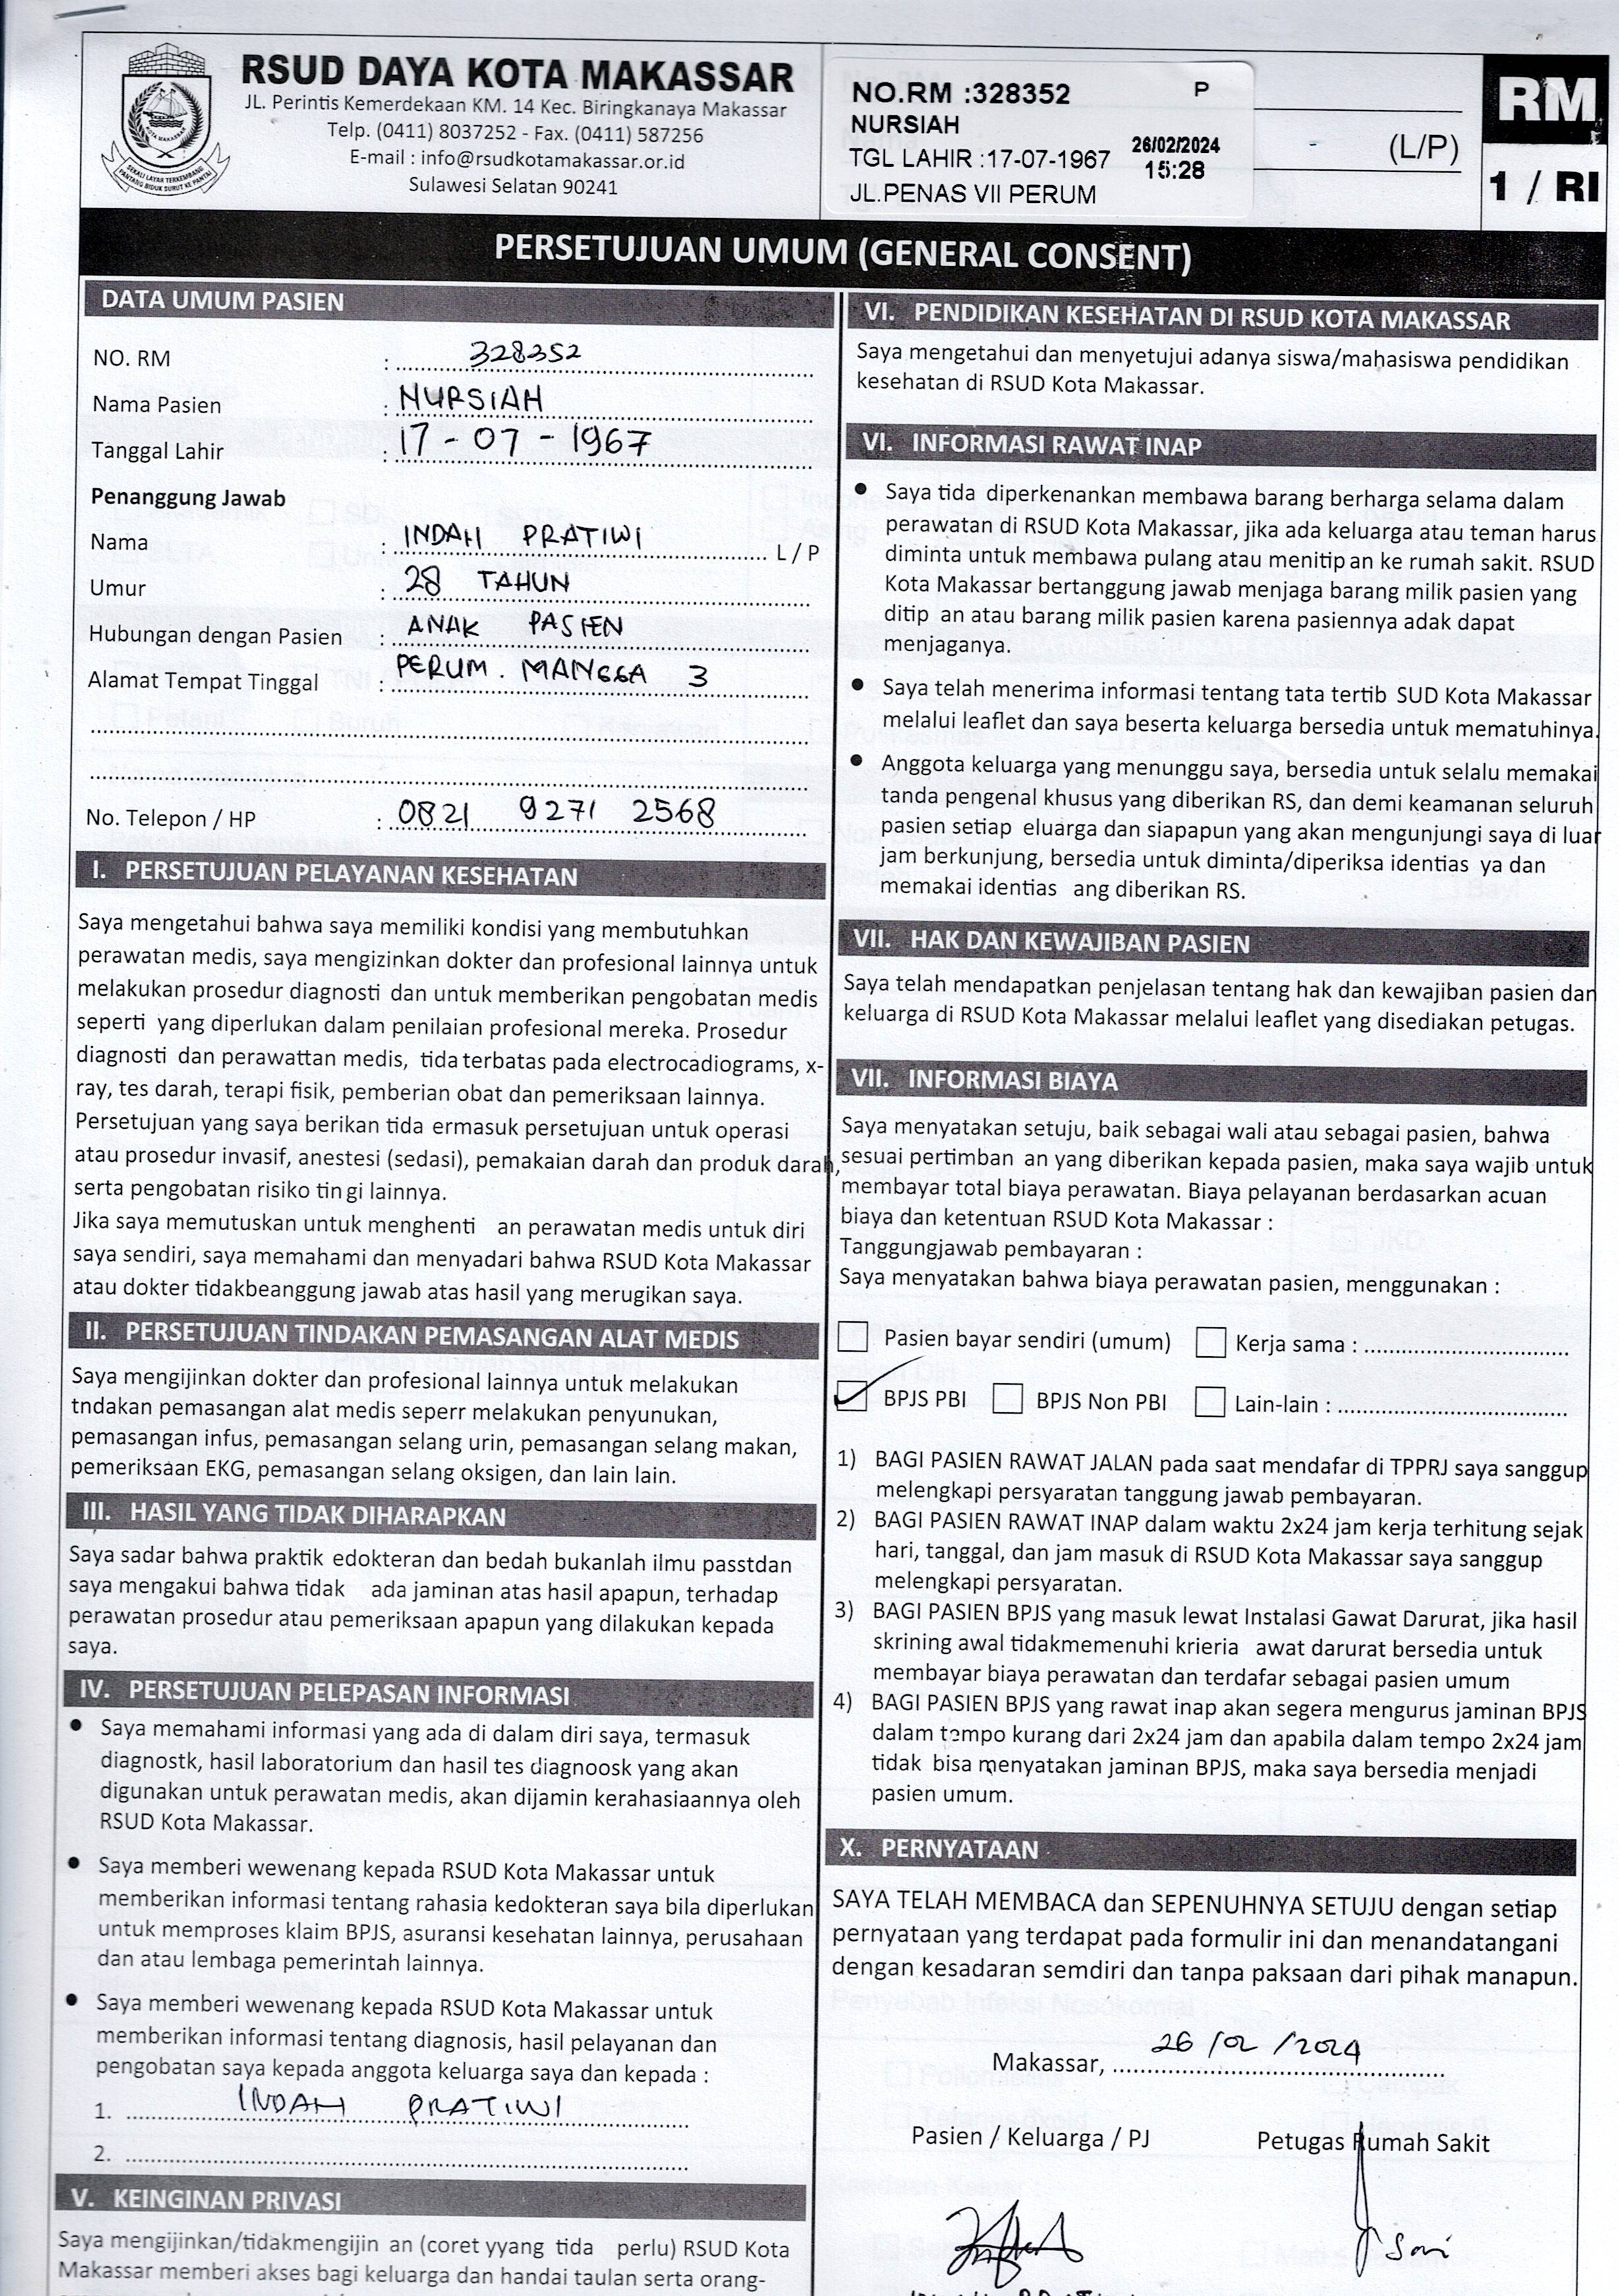 RSUD DAYA KOTA MAKASSAR
JL. Perintis Kemerdekaan KM. 14 Kec. Biringkanaya Makassar
Telp. (0411) 8037252 - Fax. (0411) 587256
E-mail : info@rsudkotamakassar.or.id
Sulawesi Selatan 90241
KOTA MAKASSAR
SEKALI LAYAR TERKEMBANG
PANTANG BIDUK SURUT KE PANTAI
NO.RM :328352 P
NURSIAH
TGL LAHIR :17-07-1967
26/02/2024
15:28
JL.PENAS VII PERUM
(L/P)
RM
1 / RI
PERSETUJUAN UMUM (GENERAL CONSENT)
DATA UMUM PASIEN
NO. RM : 328352
Nama Pasien : NURSIAH
Tanggal Lahir : 17 - 07 - 1967
Penanggung Jawab
Nama : INDAH PRATIWI L / P
Umur : 28 TAHUN
Hubungan dengan Pasien : ANAK PASIEN
Alamat Tempat Tinggal : PERUM. MANGGA 3
No. Telepon / HP : 0821 9271 2568
I. PERSETUJUAN PELAYANAN KESEHATAN
Saya mengetahui bahwa saya memiliki kondisi yang membutuhkan
perawatan medis, saya mengizinkan dokter dan profesional lainnya untuk
melakukan prosedur diagnosti dan untuk memberikan pengobatan medis
seperti yang diperlukan dalam penilaian profesional mereka. Prosedur
diagnosti dan perawattan medis, tida terbatas pada electrocadiograms, x-
ray, tes darah, terapi fisik, pemberian obat dan pemeriksaan lainnya.
Persetujuan yang saya berikan tida ermasuk persetujuan untuk operasi
atau prosedur invasif, anestesi (sedasi), pemakaian darah dan produk darah,
serta pengobatan risiko tin gi lainnya.
Jika saya memutuskan untuk menghenti an perawatan medis untuk diri
saya sendiri, saya memahami dan menyadari bahwa RSUD Kota Makassar
atau dokter tidakbeanggung jawab atas hasil yang merugikan saya.
II. PERSETUJUAN TINDAKAN PEMASANGAN ALAT MEDIS
Saya mengijinkan dokter dan profesional lainnya untuk melakukan
tndakan pemasangan alat medis seperr melakukan penyunukan,
pemasangan infus, pemasangan selang urin, pemasangan selang makan,
pemeriksaan EKG, pemasangan selang oksigen, dan lain lain.
III. HASIL YANG TIDAK DIHARAPKAN
Saya sadar bahwa praktik edokteran dan bedah bukanlah ilmu passtdan
saya mengakui bahwa tidak ada jaminan atas hasil apapun, terhadap
perawatan prosedur atau pemeriksaan apapun yang dilakukan kepada
saya.
IV. PERSETUJUAN PELEPASAN INFORMASI
● Saya memahami informasi yang ada di dalam diri saya, termasuk
diagnostk, hasil laboratorium dan hasil tes diagnoosk yang akan
digunakan untuk perawatan medis, akan dijamin kerahasiaannya oleh
RSUD Kota Makassar.
● Saya memberi wewenang kepada RSUD Kota Makassar untuk
memberikan informasi tentang rahasia kedokteran saya bila diperlukan
untuk memproses klaim BPJS, asuransi kesehatan lainnya, perusahaan
dan atau lembaga pemerintah lainnya.
● Saya memberi wewenang kepada RSUD Kota Makassar untuk
memberikan informasi tentang diagnosis, hasil pelayanan dan
pengobatan saya kepada anggota keluarga saya dan kepada :
1. INDAH PRATIWI
2.
V. KEINGINAN PRIVASI
Saya mengijinkan/tidakmengijin an (coret yyang tida perlu) RSUD Kota
Makassar memberi akses bagi keluarga dan handai taulan serta orang-
VI. PENDIDIKAN KESEHATAN DI RSUD KOTA MAKASSAR
Saya mengetahui dan menyetujui adanya siswa/mahasiswa pendidikan
kesehatan di RSUD Kota Makassar.
VI. INFORMASI RAWAT INAP
● Saya tida diperkenankan membawa barang berharga selama dalam
perawatan di RSUD Kota Makassar, jika ada keluarga atau teman harus
diminta untuk membawa pulang atau menitip an ke rumah sakit. RSUD
Kota Makassar bertanggung jawab menjaga barang milik pasien yang
ditip an atau barang milik pasien karena pasiennya adak dapat
menjaganya.
● Saya telah menerima informasi tentang tata tertib SUD Kota Makassar
melalui leaflet dan saya beserta keluarga bersedia untuk mematuhinya.
● Anggota keluarga yang menunggu saya, bersedia untuk selalu memakai
tanda pengenal khusus yang diberikan RS, dan demi keamanan seluruh
pasien setiap eluarga dan siapapun yang akan mengunjungi saya di luar
jam berkunjung, bersedia untuk diminta/diperiksa identias ya dan
memakai identias ang diberikan RS.
VII. HAK DAN KEWAJIBAN PASIEN
Saya telah mendapatkan penjelasan tentang hak dan kewajiban pasien dan
keluarga di RSUD Kota Makassar melalui leaflet yang disediakan petugas.
VII. INFORMASI BIAYA
Saya menyatakan setuju, baik sebagai wali atau sebagai pasien, bahwa
sesuai pertimban an yang diberikan kepada pasien, maka saya wajib untuk
membayar total biaya perawatan. Biaya pelayanan berdasarkan acuan
biaya dan ketentuan RSUD Kota Makassar :
Tanggungjawab pembayaran :
Saya menyatakan bahwa biaya perawatan pasien, menggunakan :
Pasien bayar sendiri (umum) Kerja sama :
BPJS PBI BPJS Non PBI Lain-lain :
1) BAGI PASIEN RAWAT JALAN pada saat mendafar di TPPRJ saya sanggup
melengkapi persyaratan tanggung jawab pembayaran.
2) BAGI PASIEN RAWAT INAP dalam waktu 2x24 jam kerja terhitung sejak
hari, tanggal, dan jam masuk di RSUD Kota Makassar saya sanggup
melengkapi persyaratan.
3) BAGI PASIEN BPJS yang masuk lewat Instalasi Gawat Darurat, jika hasil
skrining awal tidakmemenuhi krieria awat darurat bersedia untuk
membayar biaya perawatan dan terdafar sebagai pasien umum
4) BAGI PASIEN BPJS yang rawat inap akan segera mengurus jaminan BPJS
dalam tempo kurang dari 2x24 jam dan apabila dalam tempo 2x24 jam
tidak bisa menyatakan jaminan BPJS, maka saya bersedia menjadi
pasien umum.
X. PERNYATAAN
SAYA TELAH MEMBACA dan SEPENUHNYA SETUJU dengan setiap
pernyataan yang terdapat pada formulir ini dan menandatangani
dengan kesadaran semdiri dan tanpa paksaan dari pihak manapun.
Makassar, 26/02/2024
Pasien / Keluarga / PJ Petugas Rumah Sakit